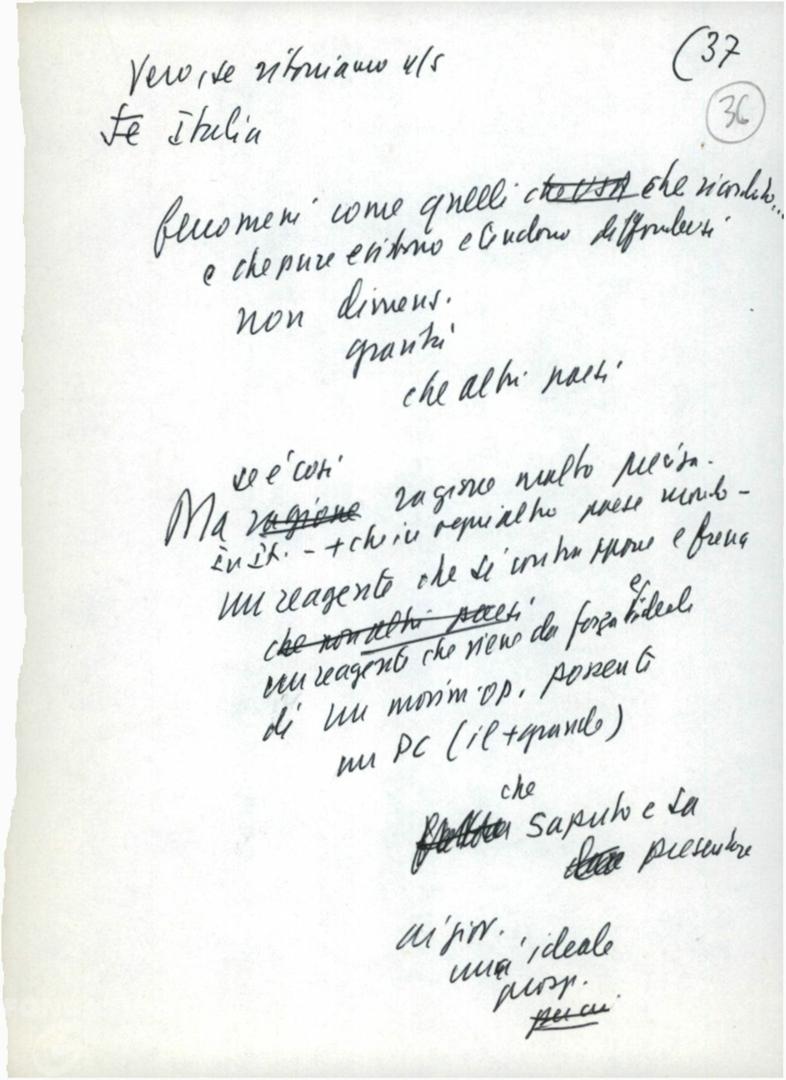 (37
36
Vero, se ritorniamo
Italia
fenomeni come quelli che USA che ricordato...
e che pure esistono e tendono diffondersi
non dimens.
gravità
che altri paesi
se è così
Ma ragione ragione molto precisa.
in It. - + che in ogni altro paese mondo -
un reagente che si contrappone e frena
che non altri paesi
un reagente che viene da forza e ideale
di un movim. op. possente
un PC (il + grande)
che
saputo e sa
presentare
ai giov.
un'ideale
prosp.